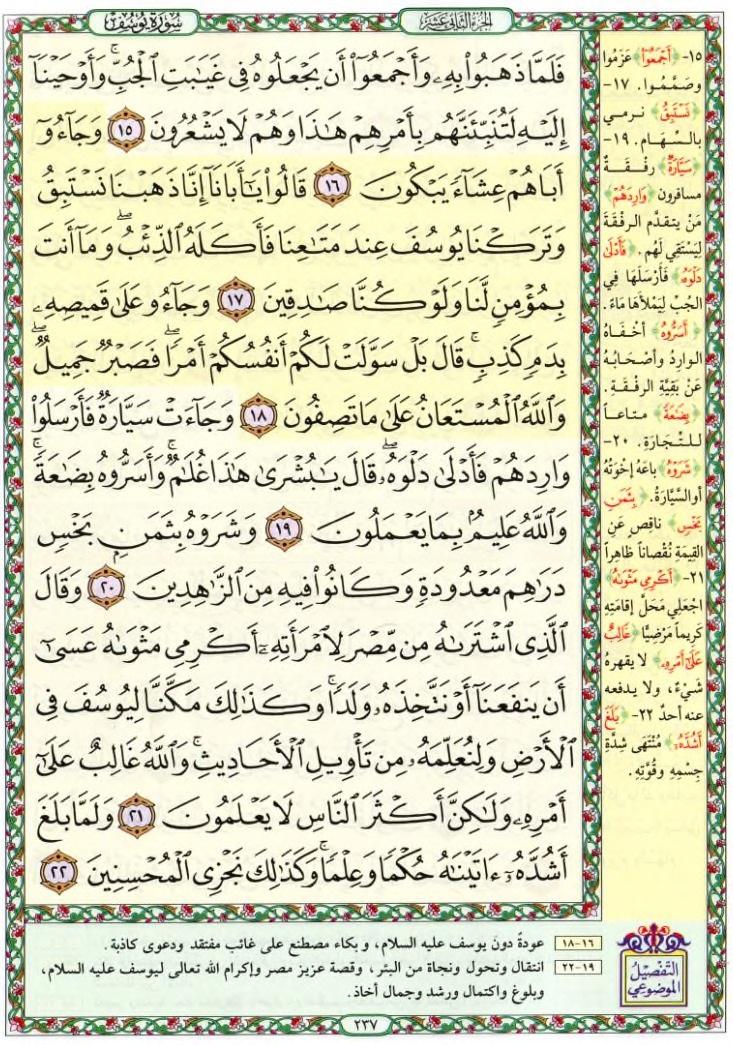 سُورَةُ يُوسُفَ
الجُزْءُ الثَّانِي عَشَرَ
فَلَمَّا ذَهَبُوا۟ بِهِۦ وَأَجْمَعُوٓا۟ أَن يَجْعَلُوهُ فِى غَيَٰبَتِ ٱلْجُبِّ ۚ وَأَوْحَيْنَآ
إِلَيْهِ لَتُنَبِّئَنَّهُم بِأَمْرِهِمْ هَٰذَا وَهُمْ لَا يَشْعُرُونَ ١٥ وَجَآءُوٓ
أَبَاهُمْ عِشَآءً يَبْكُونَ ١٦ قَالُوا۟ يَٰٓأَبَانَآ إِنَّا ذَهَبْنَا نَسْتَبِقُ
وَتَرَكْنَا يُوسُفَ عِندَ مَتَٰعِنَا فَأَكَلَهُ ٱلذِّئْبُ ۖ وَمَآ أَنتَ
بِمُؤْمِنٍ لَّنَا وَلَوْ كُنَّا صَٰدِقِينَ ١٧ وَجَآءُو عَلَىٰ قَمِيصِهِۦ
بِدَمٍ كَذِبٍ ۚ قَالَ بَلْ سَوَّلَتْ لَكُمْ أَنفُسُكُمْ أَمْرًا ۖ فَصَبْرٌ جَمِيلٌ ۖ
وَٱللَّهُ ٱلْمُسْتَعَانُ عَلَىٰ مَا تَصِفُونَ ١٨ وَجَآءَتْ سَيَّارَةٌ فَأَرْسَلُوا۟
وَارِدَهُمْ فَأَدْلَىٰ دَلْوَهُۥ ۖ قَالَ يَٰبُشْرَىٰ هَٰذَا غُلَٰمٌ ۚ وَأَسَرُّوهُ بِضَٰعَةً ۚ
وَٱللَّهُ عَلِيمٌۢ بِمَا يَعْمَلُونَ ١٩ وَشَرَوْهُ بِثَمَنٍۭ بَخْسٍ
دَرَٰهِمَ مَعْدُودَةٍ وَكَانُوا۟ فِيهِ مِنَ ٱلزَّٰهِدِينَ ٢٠ وَقَالَ
ٱلَّذِى ٱشْتَرَىٰهُ مِن مِّصْرَ لِٱمْرَأَتِهِۦٓ أَكْرِمِى مَثْوَىٰهُ عَسَىٰٓ
أَن يَنفَعَنَآ أَوْ نَتَّخِذَهُۥ وَلَدًا ۚ وَكَذَٰلِكَ مَكَّنَّا لِيُوسُفَ فِى
ٱلْأَرْضِ وَلِنُعَلِّمَهُۥ مِن تَأْوِيلِ ٱلْأَحَادِيثِ ۚ وَٱللَّهُ غَالِبٌ عَلَىٰٓ
أَمْرِهِۦ وَلَٰكِنَّ أَكْثَرَ ٱلنَّاسِ لَا يَعْلَمُونَ ٢١ وَلَمَّا بَلَغَ
أَشُدَّهُۥٓ ءَاتَيْنَٰهُ حُكْمًا وَعِلْمًا ۚ وَكَذَٰلِكَ نَجْزِى ٱلْمُحْسِنِينَ ٢٢
١٥- ﴿أَجْمَعُوا﴾ عَزَمُوا
وصَمَّمُوا. ١٧-
﴿نَسْتَبِقُ﴾ نـرمـي
بالسِّـهَـام. ١٩-
﴿سَيَّارَةٌ﴾ رفْـقَـةٌ
مسافرون ﴿وَارِدَهُمْ﴾
مَنْ يتقدَّم الرفْقَةَ
لِيَسْتَقِي لَهُم. ﴿فَأَدْلَىٰ
دَلْوَهُ﴾ فَأَرْسَلَهَا فِي
الجُبّ لِيَمْلأَهَا مَاءً.
﴿أَسَرُّوهُ﴾ أخْـفَـاهُ
الواردُ وأصْـحَـابُـهُ
عَنْ بَقِيَّةِ الرفْـقَـةِ.
﴿بِضَٰعَةً﴾ متاعـاً
لـلـتِّـجَارَةِ. ٢٠-
﴿شَرَوْهُ﴾ باعَهُ إخْوَتُهُ
أو السَّيَّارَةُ. ﴿بِثَمَنٍ
بَخْسٍ﴾ ناقِصٍ عَنِ
القِيمَةِ نُقْصَاناً ظاهِراً
٢١- ﴿أَكْرِمِي مَثْوَىٰهُ﴾
اجْعَلِي مَحَلَّ إقامَتِهِ
كَرِيماً مَرْضِيًّا ﴿غَالِبٌ
عَلَىٰ أَمْرِهِ﴾ لا يقهرهُ
شَيْءٌ، ولا يـدفعه
عنه أحدٌ ٢٢- ﴿بَلَغَ
أَشُدَّهُ﴾ مُنْتَهَى شِدَّةِ
جِسْمِهِ وقُوَّتِهِ.
التَّفْصِيلُ
الموضُوعِي
١٦-١٨ عودةٌ دونَ يوسف عليه السلام، و بكاء مصطنع على غائب مفتقد ودعوى كاذبة.
١٩-٢٢ انتقال وتحول ونجاة من البئر، وقصة عزيز مصر وإكرام الله تعالى ليوسف عليه السلام،
وبلوغ واكتمال ورشد وجمال أخاذ.
٢٣٧